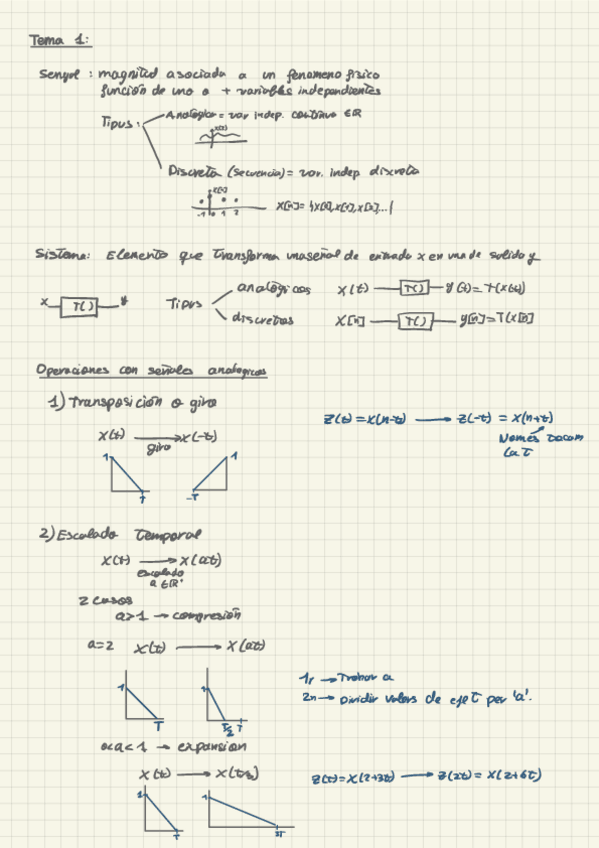 Tema 1:
Senyal : magnitud asociada a un fenomeno fisico
función de uno o + variables independientes
Tipus:
Analógica = var indep. continua ∈ℝ
x(t)
Discreta (secuencia) = var. indep discreta
x[n]
-1 0 1 2
x[n]= {x[0],x[1],x[2]...}
Sistema: Elemento que transforma una señal de entrada x en una de salida y
x T( ) y
Tipus
analógicos x(t) T( ) y(t)=T(x(t))
discretos x[n] T( ) y[n]=T(x[n])
Operaciones con señales analogicas
1) Transposición o giro
x(t) → x(-t)
giro
z(t)=x(n-t) → z(-t) = x(n+t)
Només tocam
la t
1 T -T 1
2) Escalado Temporal
x(t) → x(at)
escalado
a ∈ℝ⁺
2 casos
a>1 → compresión
a=2 x(t) → x(at)
1 T 1 T/2 T
1r → Trobar a
2n → Dividir valors de eje t per 'a'.
0<a<1 → expansion
x(t) → x(t/2)
z(t)=x(2+3t) → z(2t) = x(2+6t)
1 T 1 2T